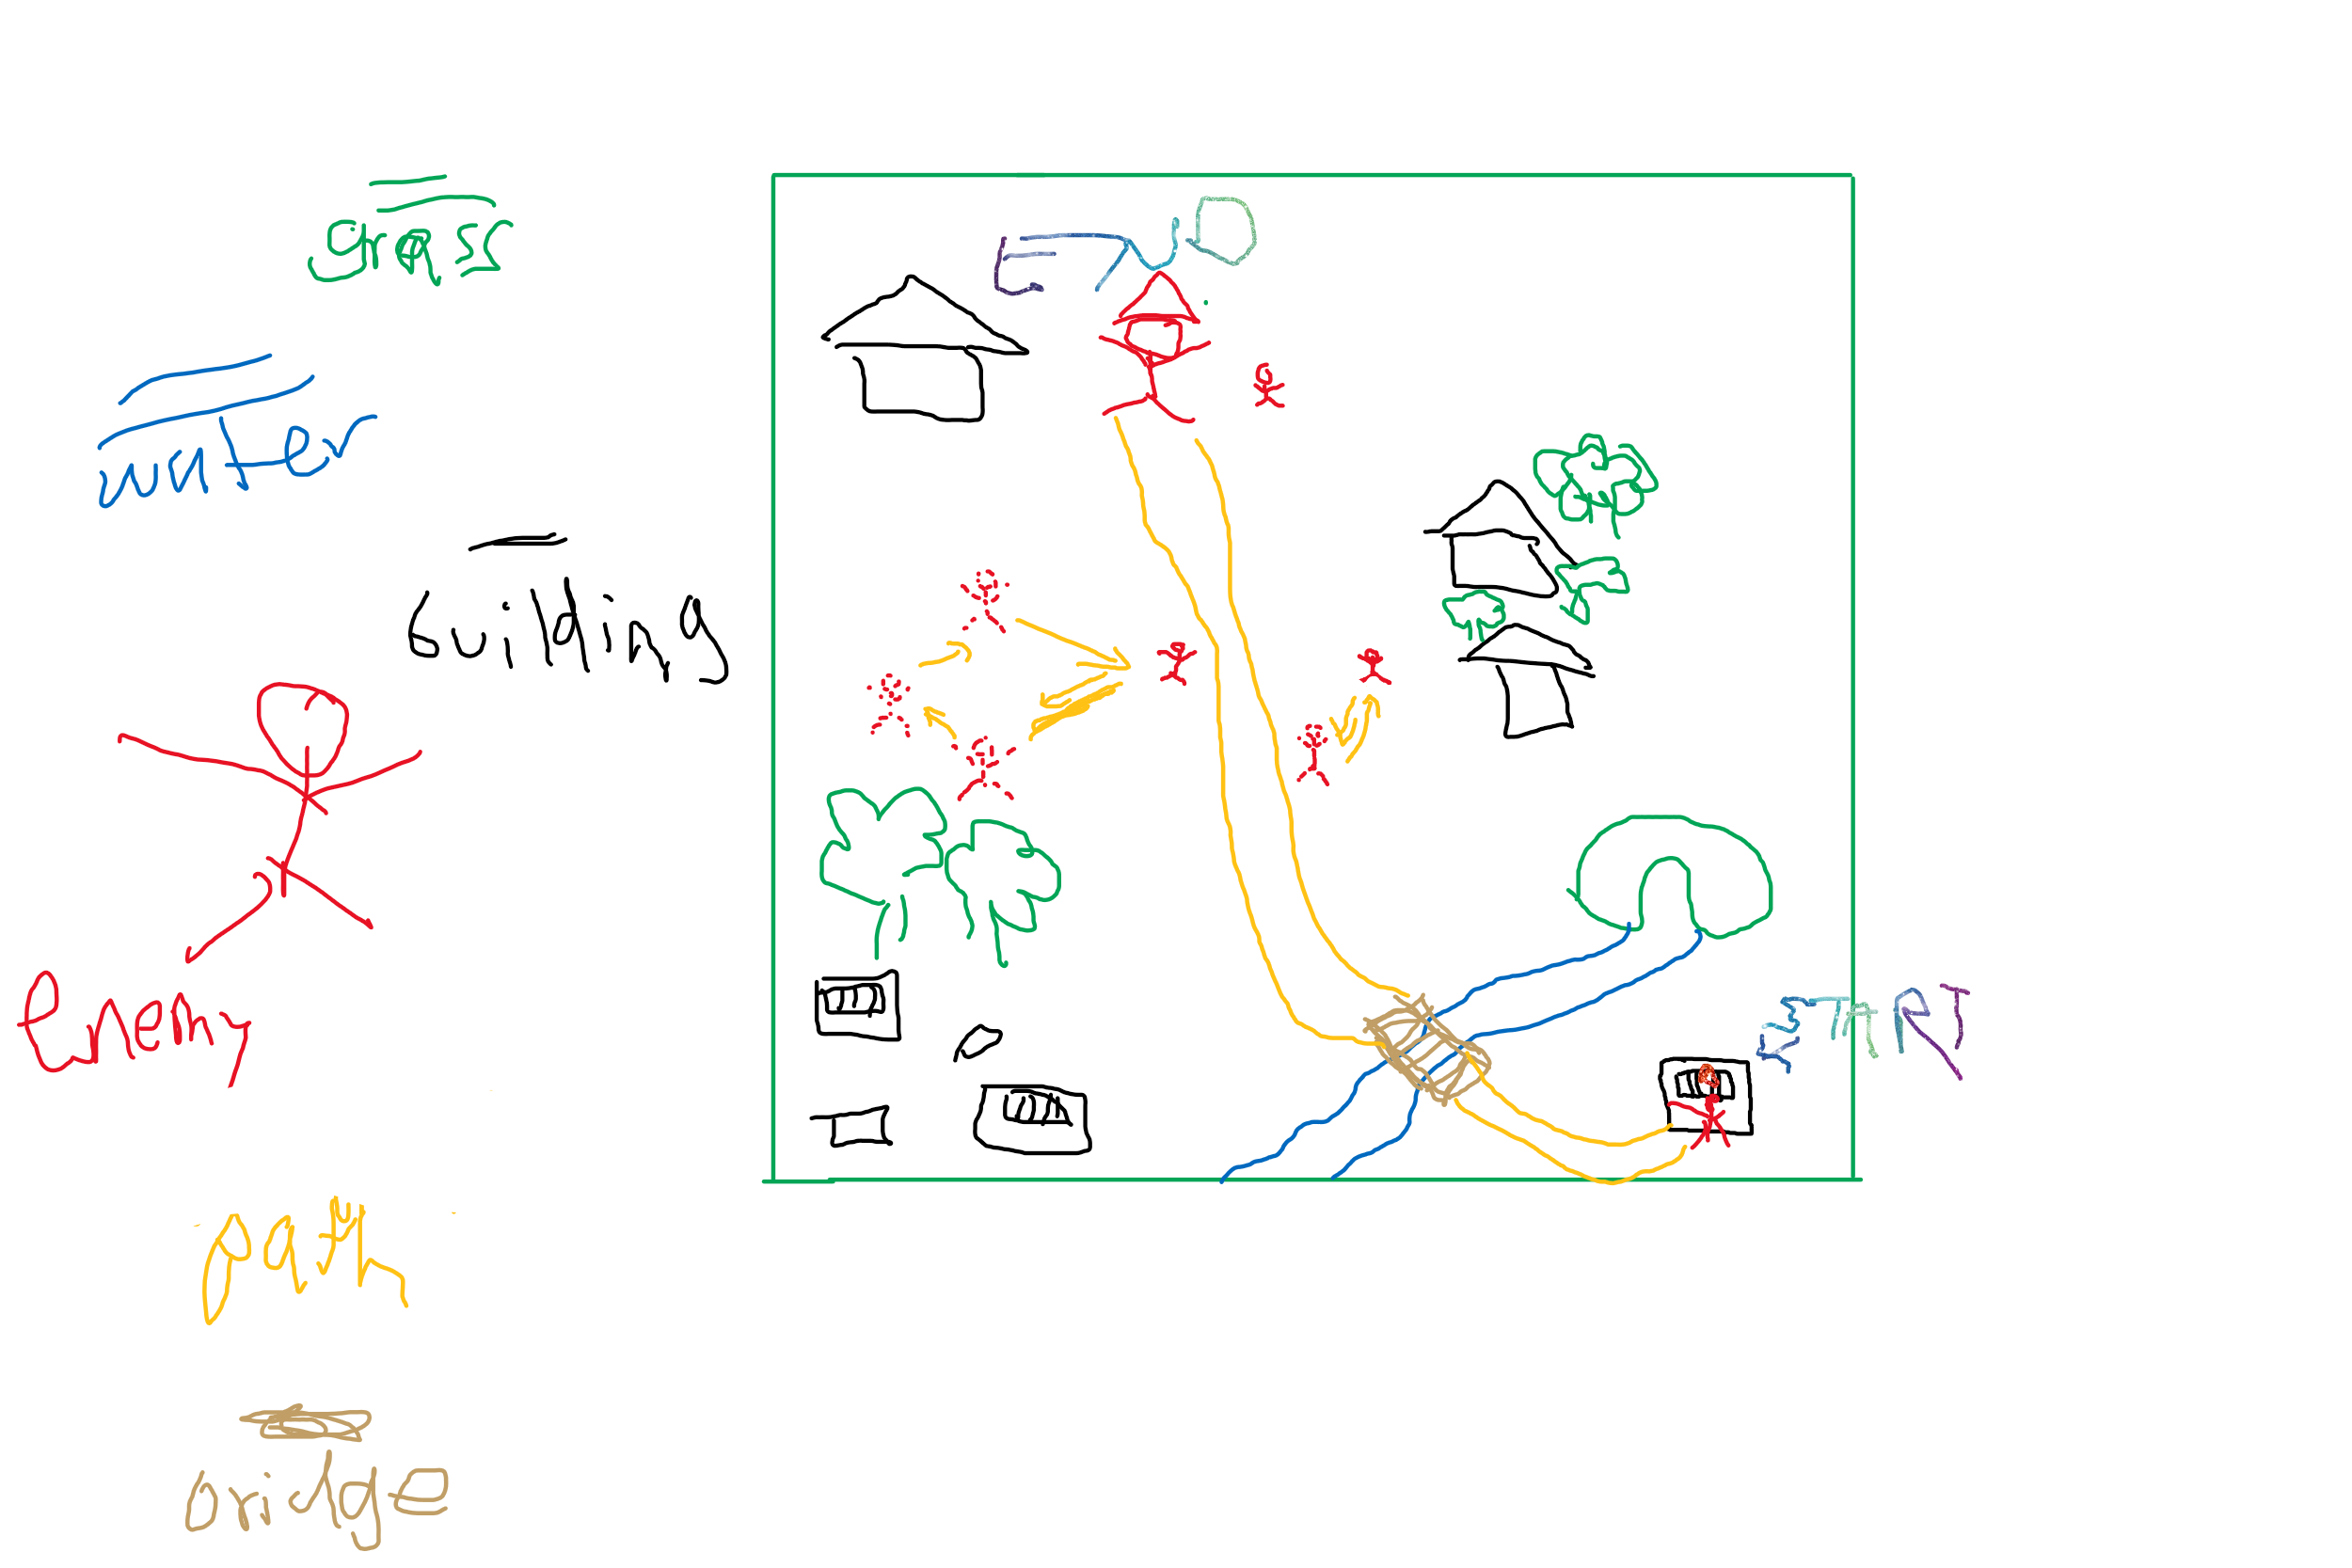 grass
water
building
enemy
path
bridge
END
START